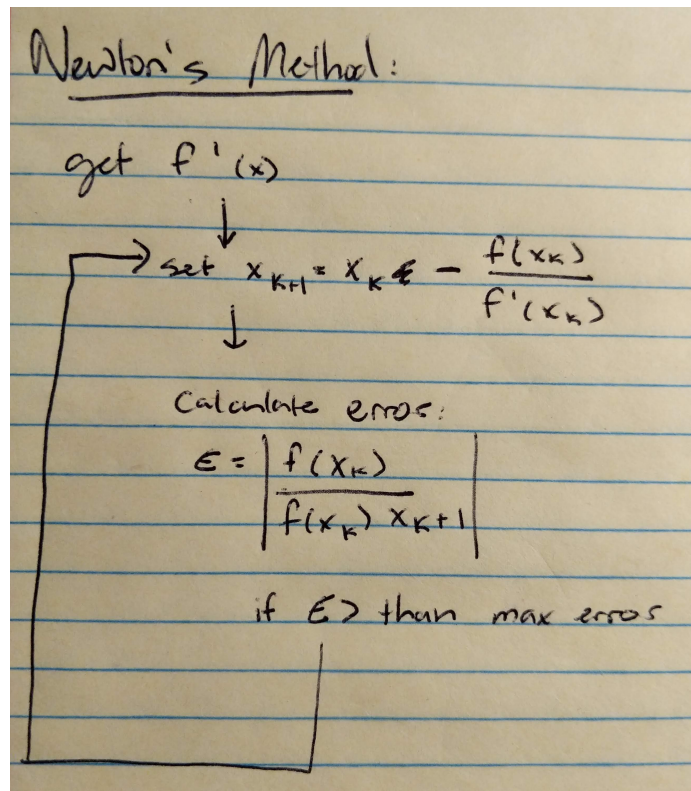 Newton's Method:
get f'(x)
↓
→ set x_{k+1} = x_k - \frac{f(x_k)}{f'(x_k)}
↓
Calculate error:
ε = \left| \frac{f(x_k)}{f(x_k) x_{k+1}} \right|
if ε > than max error